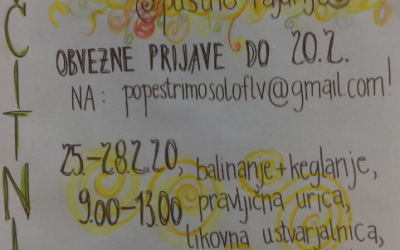 pustno rajanje
OBVEZNE PRIJAVE DO 20.2.
NA: popestrimosoloflv@gmail.com!
25.-28.2.20, balinanje+keglanje,
9.00-13.00 pravljična urica,
likovna ustvarjalnica,
Č
I
T
N
I